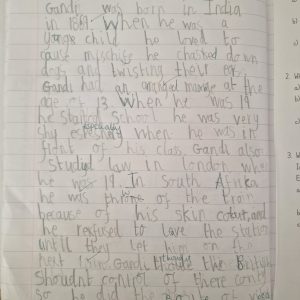 Gandi was born in India,
in 1869. When he was a
young child he loved to
cause mischife he chased down
dogs and twisting their ears
Gandi had an arranged marrage at the
age of 13. When he was 19
he started school he was very
shy especially when he was in
front of his class. Gandi also
studyed law in london when
he was 19. In South Africa
he was throne of the train
because of his skin colour, and
he refused to leave the station
untill they let him on the
next train. Gandi thought the British
shoudnt control of there
so he did the